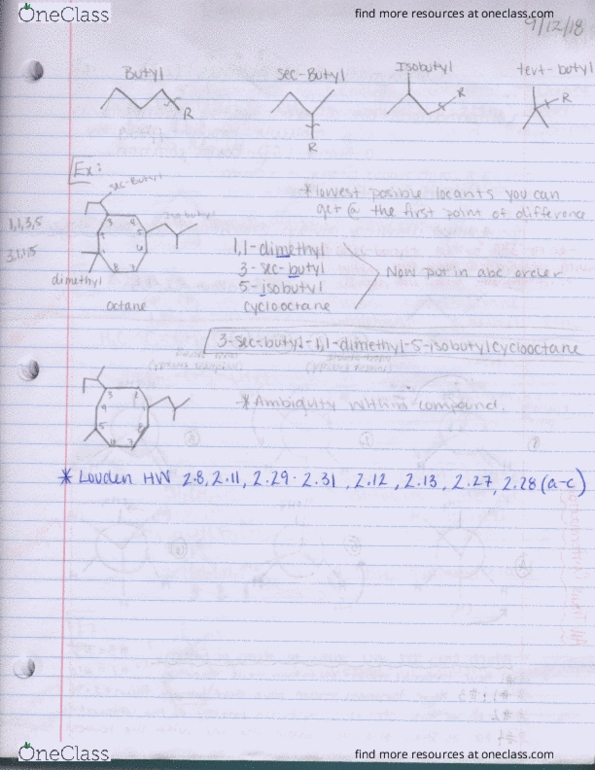 OneClass
find more resources at oneclass.com
9/12/18
Butyl
sec-Butyl
Isobutyl
tert-butyl
R
R
R
R
Ex:
sec-Butyl
Isobutyl
*lowest posible locants you can
get @ the first point of difference
1,1,3,5
1,1-dimethyl
3-sec-butyl
5-isobutyl
cyclooctane
Now put in abc order
dimethyl
octane
3-sec-butyl-1,1-dimethyl-5-isobutylcyclooctane
*Ambiguity within compound.
* Louden HW 2.8, 2.11, 2.29-2.31, 2.12, 2.13, 2.27, 2.28(a-c)
OneClass
find more resources at oneclass.com